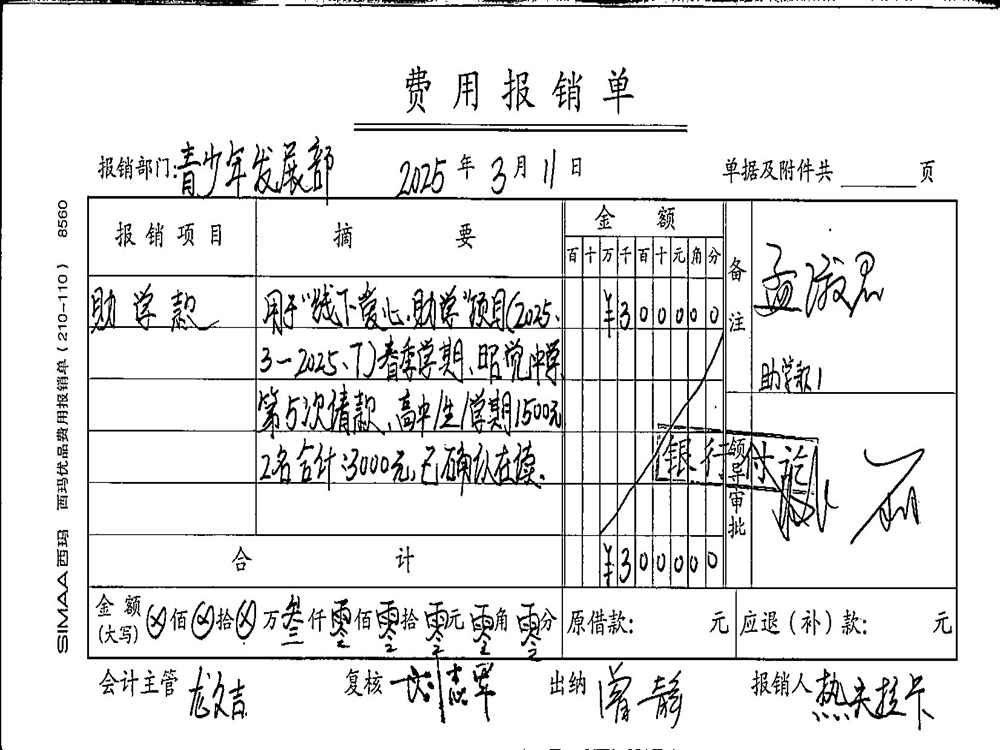 费用报销单
报销部门: 青少年发展部 2025 年 3 月 11 日 单据及附件共 页
报销项目 摘要 金额 备注
百 十 万 千 百 十 元 角 分
助学款 用于"线下爱心·助学"项目(2025.
¥300000
3-2025.7)春季学期、昭觉中学
第5次请款、高中/生/学期1500元
2名合计:3000元,已确认在读.
助学款1
银行付讫
领导审批
合计 ¥300000
金额(大写) ⊗佰⊗拾⊗万叁仟零佰零拾零元零角零分 原借款: 元 应退(补)款: 元
会计主管 复核 出纳 曾静 报销人 热夫拉卡
SIMAA西玛 西玛优品费用报销单(210-110) 8560